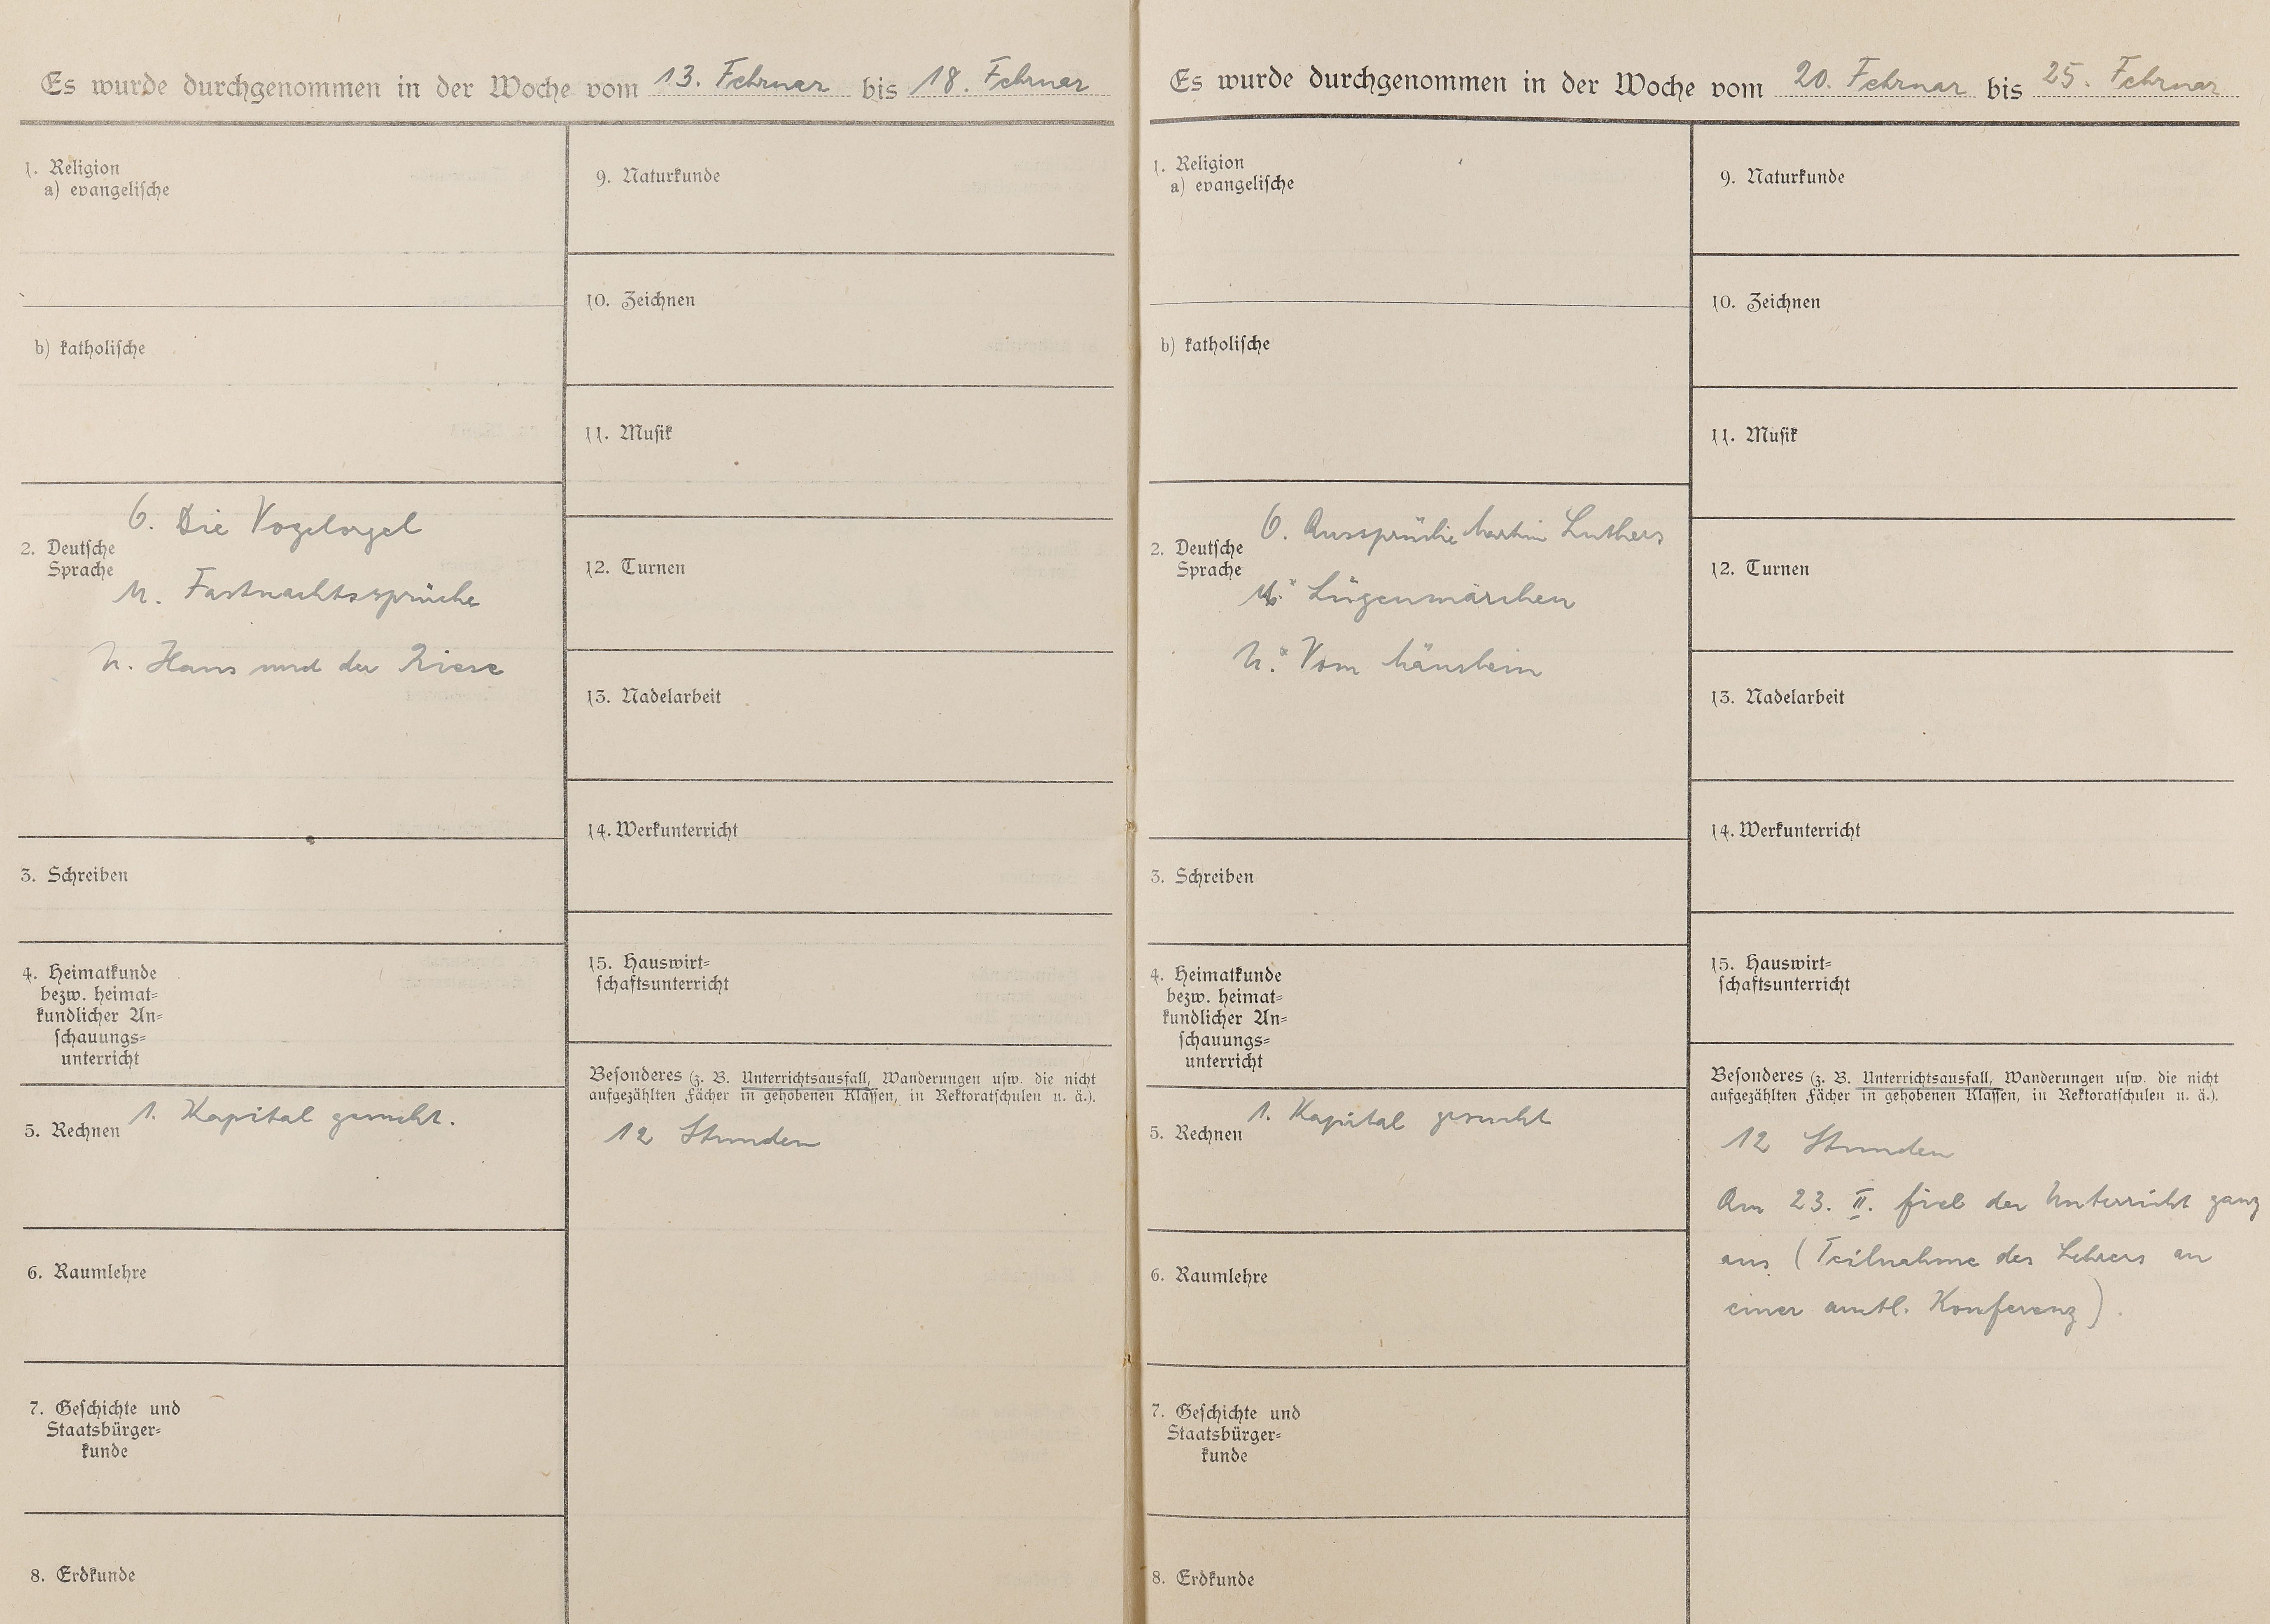 Es wurde durchgenommen in der Woche vom 13. Februar bis 18. Februar
1. Religion
a) evangelische
b) katholische
O. Die Vogelorgel
2. Deutsche
Sprache
M. Fastnachtssprüche
U. Hans und der Riese
3. Schreiben
4. Heimatkunde
bezw. heimat=
kundlicher An=
schauungs=
unterricht
1. Kapital gesucht.
5. Rechnen
6. Raumlehre
7. Geschichte und
Staatsbürger=
kunde
8. Erdkunde
9. Naturkunde
10. Zeichnen
11. Musik
12. Turnen
13. Nadelarbeit
14. Werkunterricht
15. Hauswirt=
schaftsunterricht
Besonderes (z. B. Unterrichtsausfall, Wanderungen usw. die nicht
aufgezählten Fächer in gehobenen Klassen, in Rektoratschulen u. ä.).
12 Stunden
Es wurde durchgenommen in der Woche vom 20. Februar bis 25. Februar
1. Religion
a) evangelische
b) katholische
O. Aussprüche Martin Luthers
2. Deutsche
Sprache
M. Lügenmärchen
U. Vom Mäuslein
3. Schreiben
4. Heimatkunde
bezw. heimat=
kundlicher An=
schauungs=
unterricht
1. Kapital gesucht
5. Rechnen
6. Raumlehre
7. Geschichte und
Staatsbürger=
kunde
8. Erdkunde
9. Naturkunde
10. Zeichnen
11. Musik
12. Turnen
13. Nadelarbeit
14. Werkunterricht
15. Hauswirt=
schaftsunterricht
Besonderes (z. B. Unterrichtsausfall, Wanderungen usw. die nicht
aufgezählten Fächer in gehobenen Klassen, in Rektoratschulen u. ä.).
12 Stunden
Am 23. II. fiel der Unterricht ganz
aus (Teilnahme des Lehrers an
einer amtl. Konferenz).